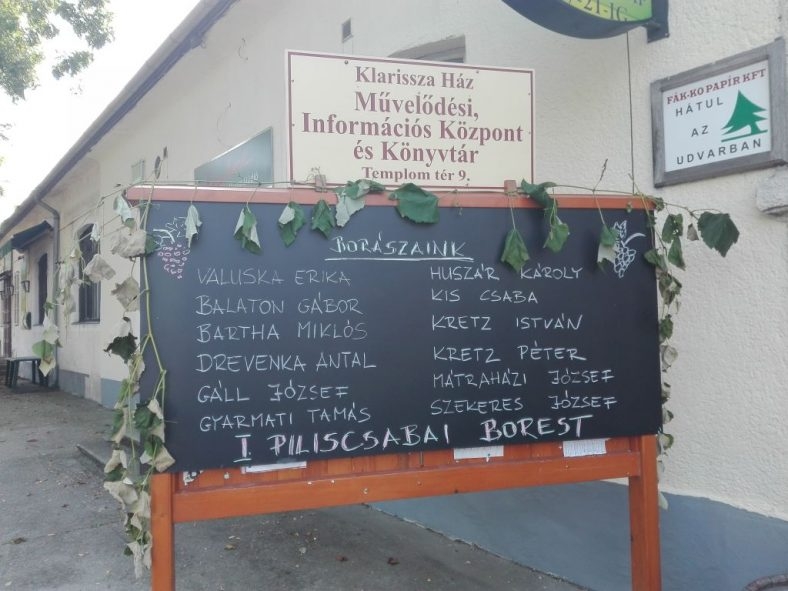 7-21-1G
FÁK-KO PAPÍR KFT
HÁTUL
AZ
UDVARBAN
Klarissza Ház
Művelődési,
Információs Központ
és Könyvtár
Templom tér 9.
BORÁSZAINK
VALUSKA ERIKA
BALATON GÁBOR
BARTHA MIKLÓS
DREVENKA ANTAL
GÁLL JÓZSEF
GYARMATI TAMÁS
HUSZÁR KÁROLY
KIS CSABA
KRETZ ISTVÁN
KRETZ PÉTER
MÁTRAHÁZI JÓZSEF
SZEKERES JÓZSEF
I PILISCSABAI BOREST